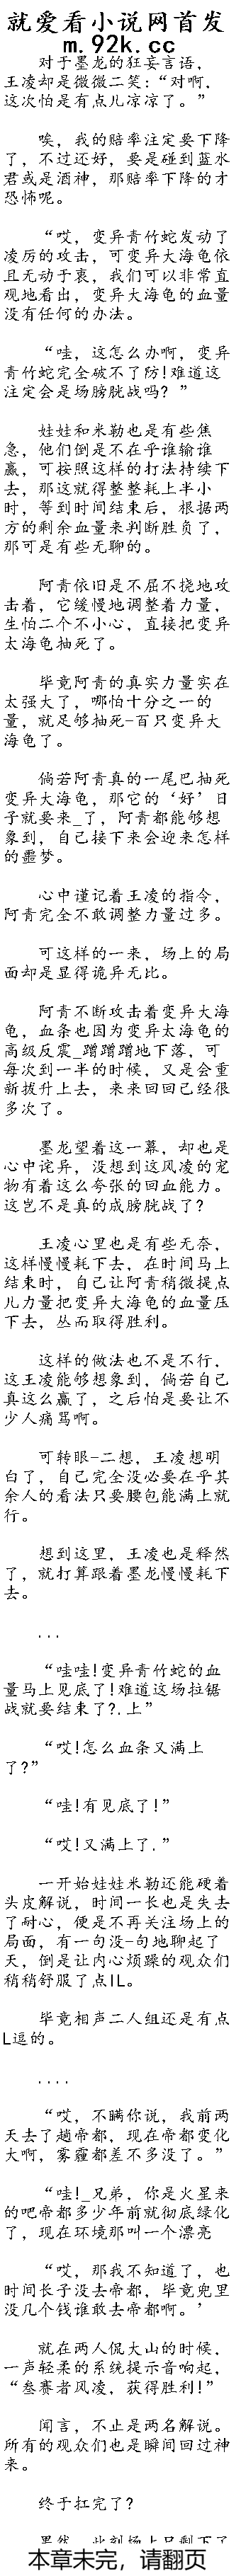 就爱看小说网首发
m.92k.cc
对于墨龙的狂妄言语，
王凌却是微微二笑：“对啊，
这次怕是有点儿凉凉了。”
唉，我的赔率注定要下降
了，不过还好，要是碰到蓝水
君或是酒神，那赔率下降的才
恐怖呢。
“哎，变异青竹蛇发动了
凌厉的攻击，可变异大海龟依
且无动于衷，我们可以非常直
观地看出，变异大海龟的血量
没有任何的办法。
“哇，这怎么办啊，变异
青竹蛇完全破不了防!难道这
注定会是场膀胱战吗？”
娃娃和米勒也是有些焦
急，他们倒是不在乎谁输谁
赢，可按照这样的打法持续下
去，那这就得整整耗上半小
时，等到时间结束后，根据两
方的剩余血量来判断胜负了，
那可是有些无聊的。
阿青依旧是不屈不挠地攻
击着，它缓慢地调整着力量，
生怕二个不小心，直接把变异
太海龟抽死了。
毕竟阿青的真实力量实在
太强大了，哪怕十分之一的
量，就足够抽死-百只变异大
海龟了。
倘若阿青真的一尾巴抽死
变异大海龟，那它的‘好’日
子就要来_了，阿青都能够想
象到，自己接下来会迎来怎样
的噩梦。
心中谨记着王凌的指令，
阿青完全不敢调整力量过多。
可这样的一来，场上的局
面却是显得诡异无比。
阿青不断攻击着变异大海
龟，血条也因为变异太海龟的
高级反震_蹭蹭蹭地下落，可
每次到一半的时候，又是会重
新拔升上去，来来回回已经很
多次了。
墨龙望着这一幕，却也是
心中诧异，没想到这风凌的宠
物有着这么夸张的回血能力。
这岂不是真的成膀胱战了?
王凌心里也是有些无奈，
这样慢慢耗下去，在时间马上
结束时，自己让阿青稍微提点
儿力量把变异大海龟的血量压
下去，丛而取得胜利。
这样的做法也不是不行，
这王凌能够想象到，倘若自己
真这么赢了，之后怕是要让不
少人痛骂啊。
可转眼-二想，王凌想明
白了，自己完全没必要在乎其
余人的看法只要腰包能满上就
行。
想到这里，王凌也是释然
了，就打算跟着墨龙慢慢耗下
去。
...
“哇哇!变异青竹蛇的血
量马上见底了!难道这场拉锯
战就要结束了?.上”
“哎!怎么血条又满上
了?”
“哇!有见底了!”
“哎!又满上了.”
一开始娃娃米勒还能硬着
头皮解说，时间一长也是失去
了耐心，便是不再关注场上的
局面，有一句没-句地聊起了
天，倒是让内心烦躁的观众们
稍稍舒服了点IL。
毕竟相声二人组还是有点
L逗的。
....
“哎，不瞒你说，我前两
天去了趟帝都，现在帝都变化
大啊，雾霾都差不多没了。”
“哇!_兄弟，你是火星来
的吧帝都多少年前就彻底绿化
了，现在环境那叫一个漂亮
“哎，那我不知道了，也
时间长子没去帝都，毕竟兜里
没几个钱谁敢去帝都啊。’
就在两人侃大山的时候，
一声轻柔的系统提示音响起，
“叁赛者风凌，获得胜利!”
闻言，不止是两名解说。
所有的观众们也是瞬间回过神
来。
终于扛完了?
果然，此刻场上只剩下了
本章未完，请翻页